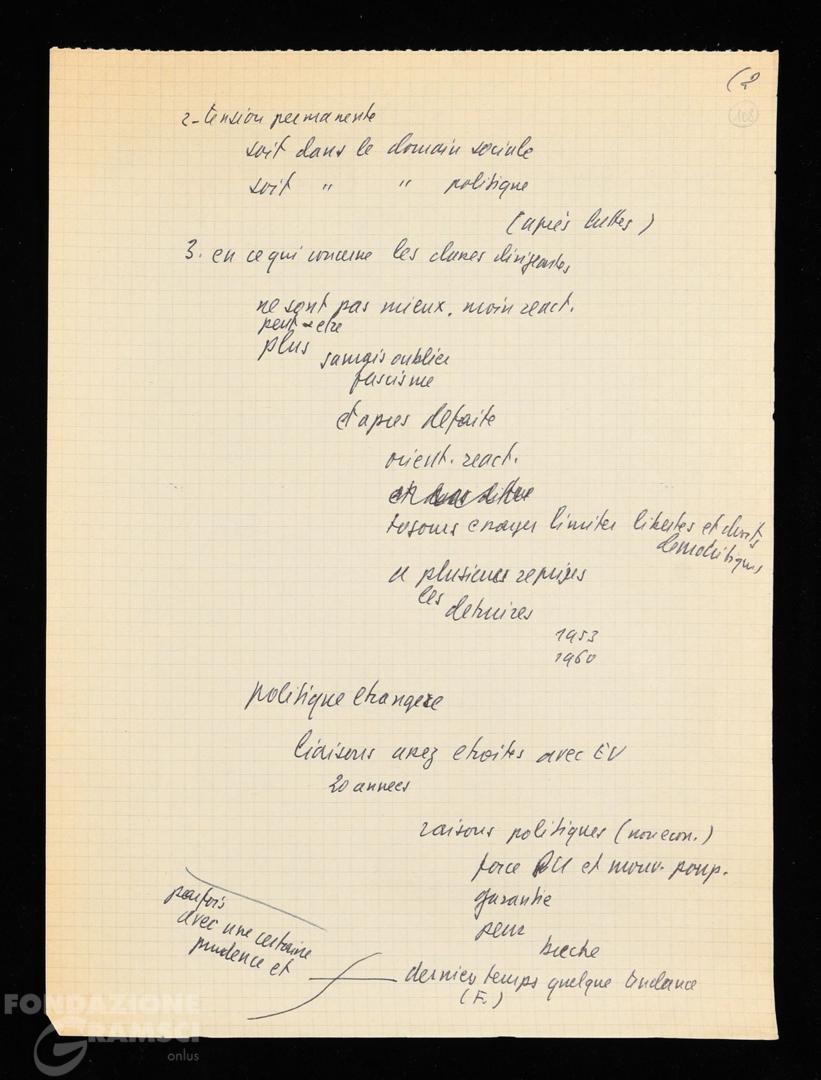 (2
108
2-tension permanente
soit dans le domain sociale
soit " " politique
(après luttes)
3. en ce qui concerne les classes dirigeantes
ne sont pas mieux. moin react.
peut-etre
plus
jamais oublier
fascisme
et apres defaite
orient. react.
tojours essayer limiter libertes et droits
democratiques
a plusieurs reprises
les
detruires
1953
1960
politique etrangere
liaisons assez etroites avec EU
20 annees
raisons politiques (non econ.)
force PCI et mouv. pop.
garantie
peur
breche
parfois
avec une certaine
prudence et
derniers temps quelque tendance
(F.)
FONDAZIONE
GRAMSCI
onlus